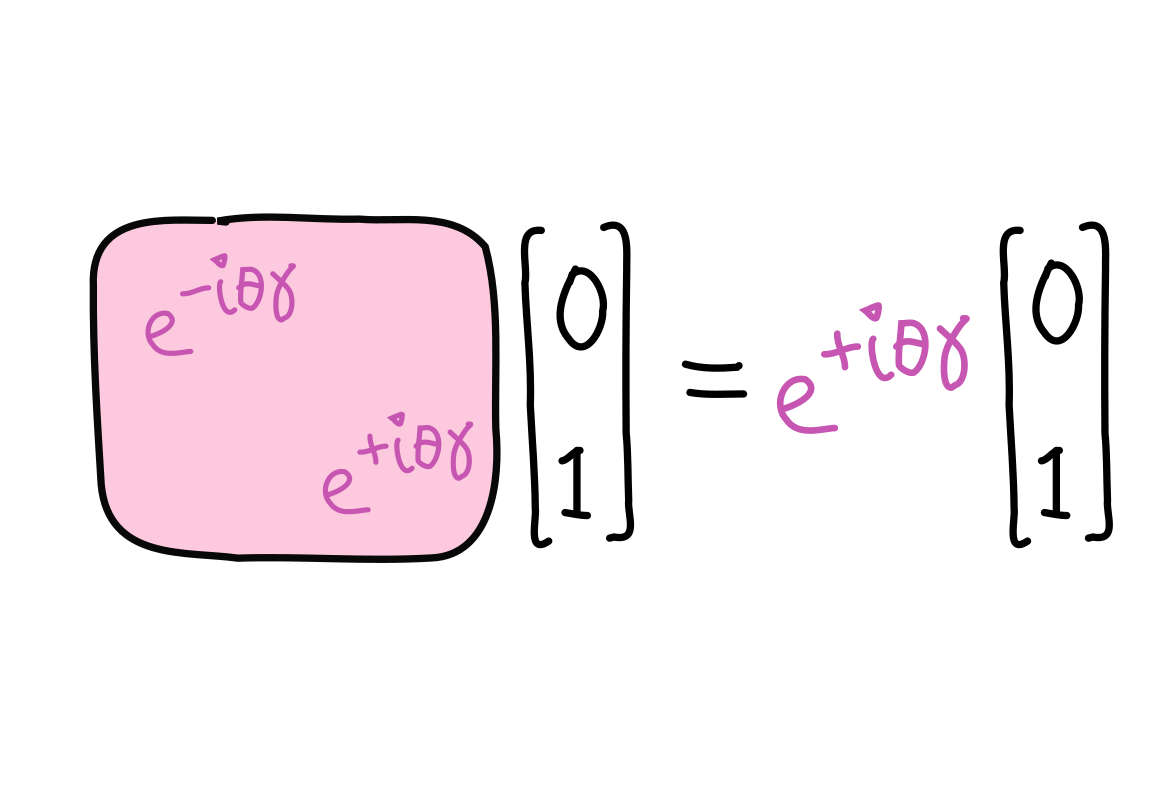 e^{-iθγ} 0
= e^{+iθγ} 0
e^{+iθγ} 1 1